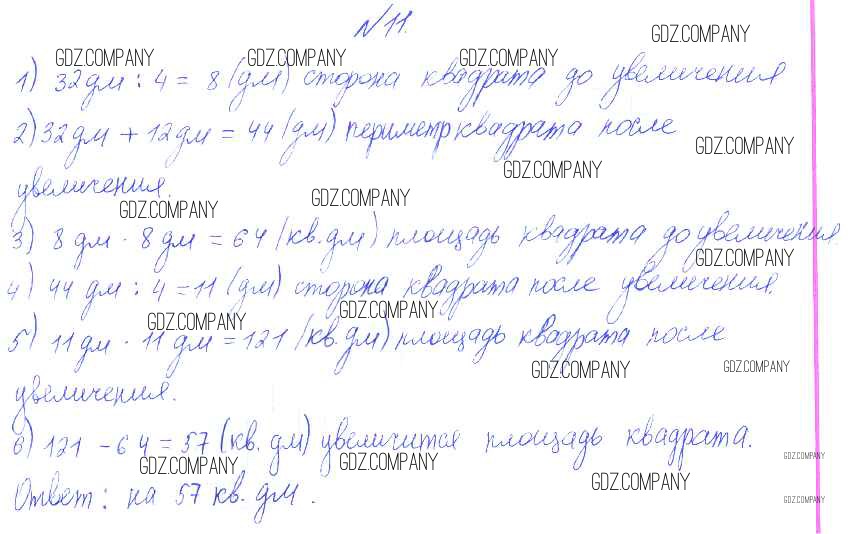 №11.
GDZ.COMPANY
GDZ.COMPANY GDZ.COMPANY GDZ.COMPANY
1) 32 дм : 4 = 8 (дм) сторона квадрата до увеличения
2) 32 дм + 12 дм = 44 (дм) периметр квадрата после
GDZ.COMPANY
GDZ.COMPANY
увеличения.
GDZ.COMPANY GDZ.COMPANY
3) 8 дм · 8 дм = 64 (кв.дм) площадь квадрата до увеличения
GDZ.COMPANY
4) 44 дм : 4 = 11 (дм) сторона квадрата после увеличения.
GDZ.COMPANY GDZ.COMPANY
5) 11 дм · 11 дм = 121 (кв.дм) площадь квадрата после
GDZ.COMPANY GDZ.COMPANY
увеличения.
6) 121 - 64 = 57 (кв. дм) увеличится площадь квадрата.
GDZ.COMPANY GDZ.COMPANY GDZ.COMPANY
GDZ.COMPANY
Ответ: на 57 кв. дм.
GDZ.COMPANY